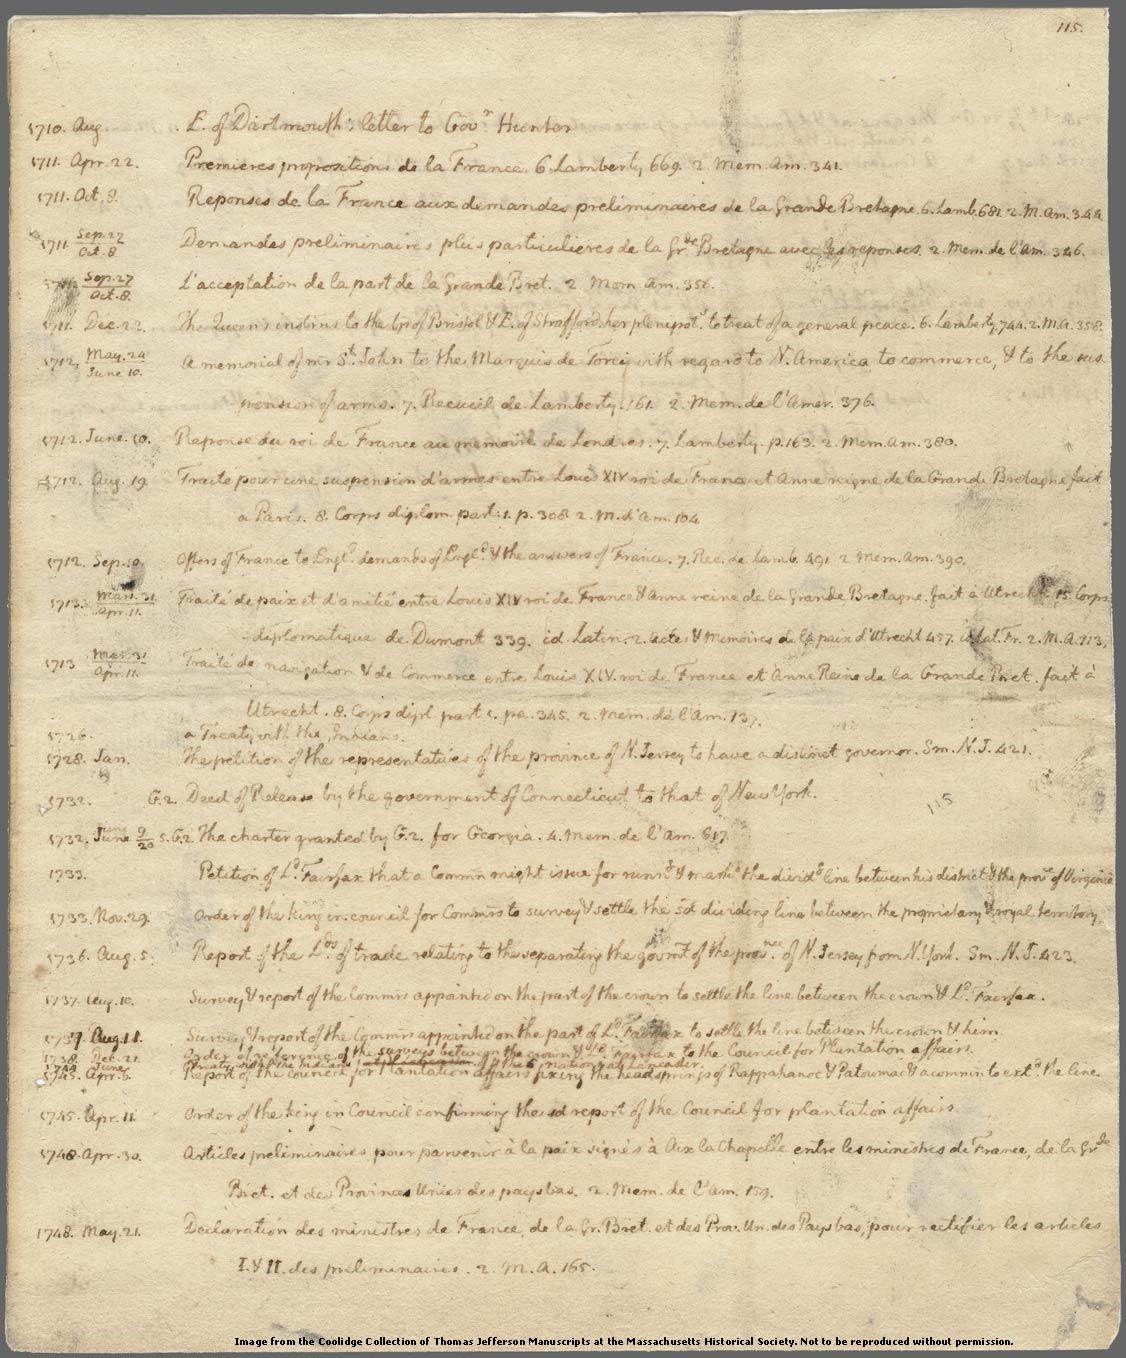 115.
1710. Aug. E. of Dartmouth's letter to Govr. Hunter
1711. Apr. 22. Premieres propositions de la France. 6. Lamberty, 669. 2 Mem. Am. 341.
1711. Oct. 8. Reponses de la France aux demandes preliminaires de la Grande Bretagne. 6. Lamb. 681. 2. M. Am. 344.
1711. Sep. 27 / Oct. 8 Demandes preliminaires plus particulieres de la Grde. Bretagne avec les reponses. 2. Mem. de l'Am. 346.
1711. Sep. 27 / Oct. 8. L'acceptation de la part de la Grande Bret. 2 Mem. Am. 356.
1711. Dec. 23. The Queen's instrns to the bp of Bristol & E. of Strafford, her plenipots. to treat of a general peace. 6. Lamberty, 744. 2. M. A. 358.
1712, May. 24 / June 10. A memorial of mr St. John to the Marquis de Torci with regard to N. America, to commerce, & to the sus
pension of arms. 7. Recueil de Lamberty. 161. 2. Mem. de l'Amer. 376.
1712. June. 10. Reponse du roi de France au memoire de Londres. 7. Lamberty. p. 163. 2. Mem. Am. 380.
1712. Aug. 19. Traité pour une suspension d'armes entre Louis XIV roi de France et Anne reigne de la Grande Bretagne fait
a Paris. 8. Corps diplom. part. 1. p. 308. 2. M. d'Am. 104.
1712. Sep. 10. Offers of France to Engld. demands of Engld. & the answers of France. 7. Rec. de Lamb. 491. 2 Mem. Am. 390.
1713. Mars. 31 / Apr. 11. Traité de paix et d'amitié entre Louis XIV roi de France & Anne reine de la Grande Bretagne. fait à Utrecht. 15. Corps
diplomatique de Dumont 339. id. Latin. 2. actes & memoires de la paix d'Utrecht 457. id. Lat. Fr. 2. M. A. 113,
1713 Mar. 31 / Apr. 11. Traité de navigation & de Commerce entre Louis XIV. roi de France et Anne Reine de la Grande Bret. fait à
Utrecht. 8. Corps dipl part 1. pa. 345. 2. Mem. de l'Am. 137.
1726. a Treaty with the Indians.
1728. Jan. The petition of the representatives of the province of N. Jersey to have a distinct governor. Sm. N. J. 421.
1732. G. 2. Deed of Release by the government of Connecticut to that of New York. 115
1732. June 9/20 5. G. 2. The charter granted by G. 2. for Georgia. 4. Mem. de l'Am. 617
1733. Petition of Ld. Fairfax that a Commn might issue for runng & markg the dividg line between his district & the provce of Virginia
1733. Nov. 29. Order of the king in council for Commrs to survey & settle the sd dividing line between the proprietary & royal territory,
1736. Aug. 5. Report of the Lds. of trade relating to the separating the govmt of the provnce. of N. Jersey from N. York. Sm. N. J. 423.
1737. Aug. 10. Survey & report of the Commrs appointed on the part of the crown to settle the line between the crown & Ld. Fairfax.
1737 Aug. 11. Survey & report of the Commrs appointed on the part of Ld. Fairfax to settle the line between the crown & him.
1738. Dec. 21. Order of reference of the surveys between the crown & Ld. Fairfax to the Council for Plantation affairs
1744 June Treaty with the Indians of the 6 nations at Lancaster.
1745. Apr. 6. Report of the council for Plantation affairs fixing the head springs of Rappahanoc & Patowmac & a commn to extd. the line
1745. Apr. 11. Order of the king in Council confirming the sd report of the Council for plantation affairs
1748. Apr. 30. Articles preliminaires pour parvenir à la paix signés à Aix la Chapelle entre les ministres de France, de la Grde
Bret. et des Provinces Unies des pays bas. 2. Mem. de l'Am. 159.
1748. May. 21. Declaration des ministres de France, de la Gr. Bret. et des Prov. Un. des Pays bas, pour rectifier les articles
I. & II. des preliminaires. 2. M. A. 165.
Image from the Coolidge Collection of Thomas Jefferson Manuscripts at the Massachusetts Historical Society. Not to be reproduced without permission.